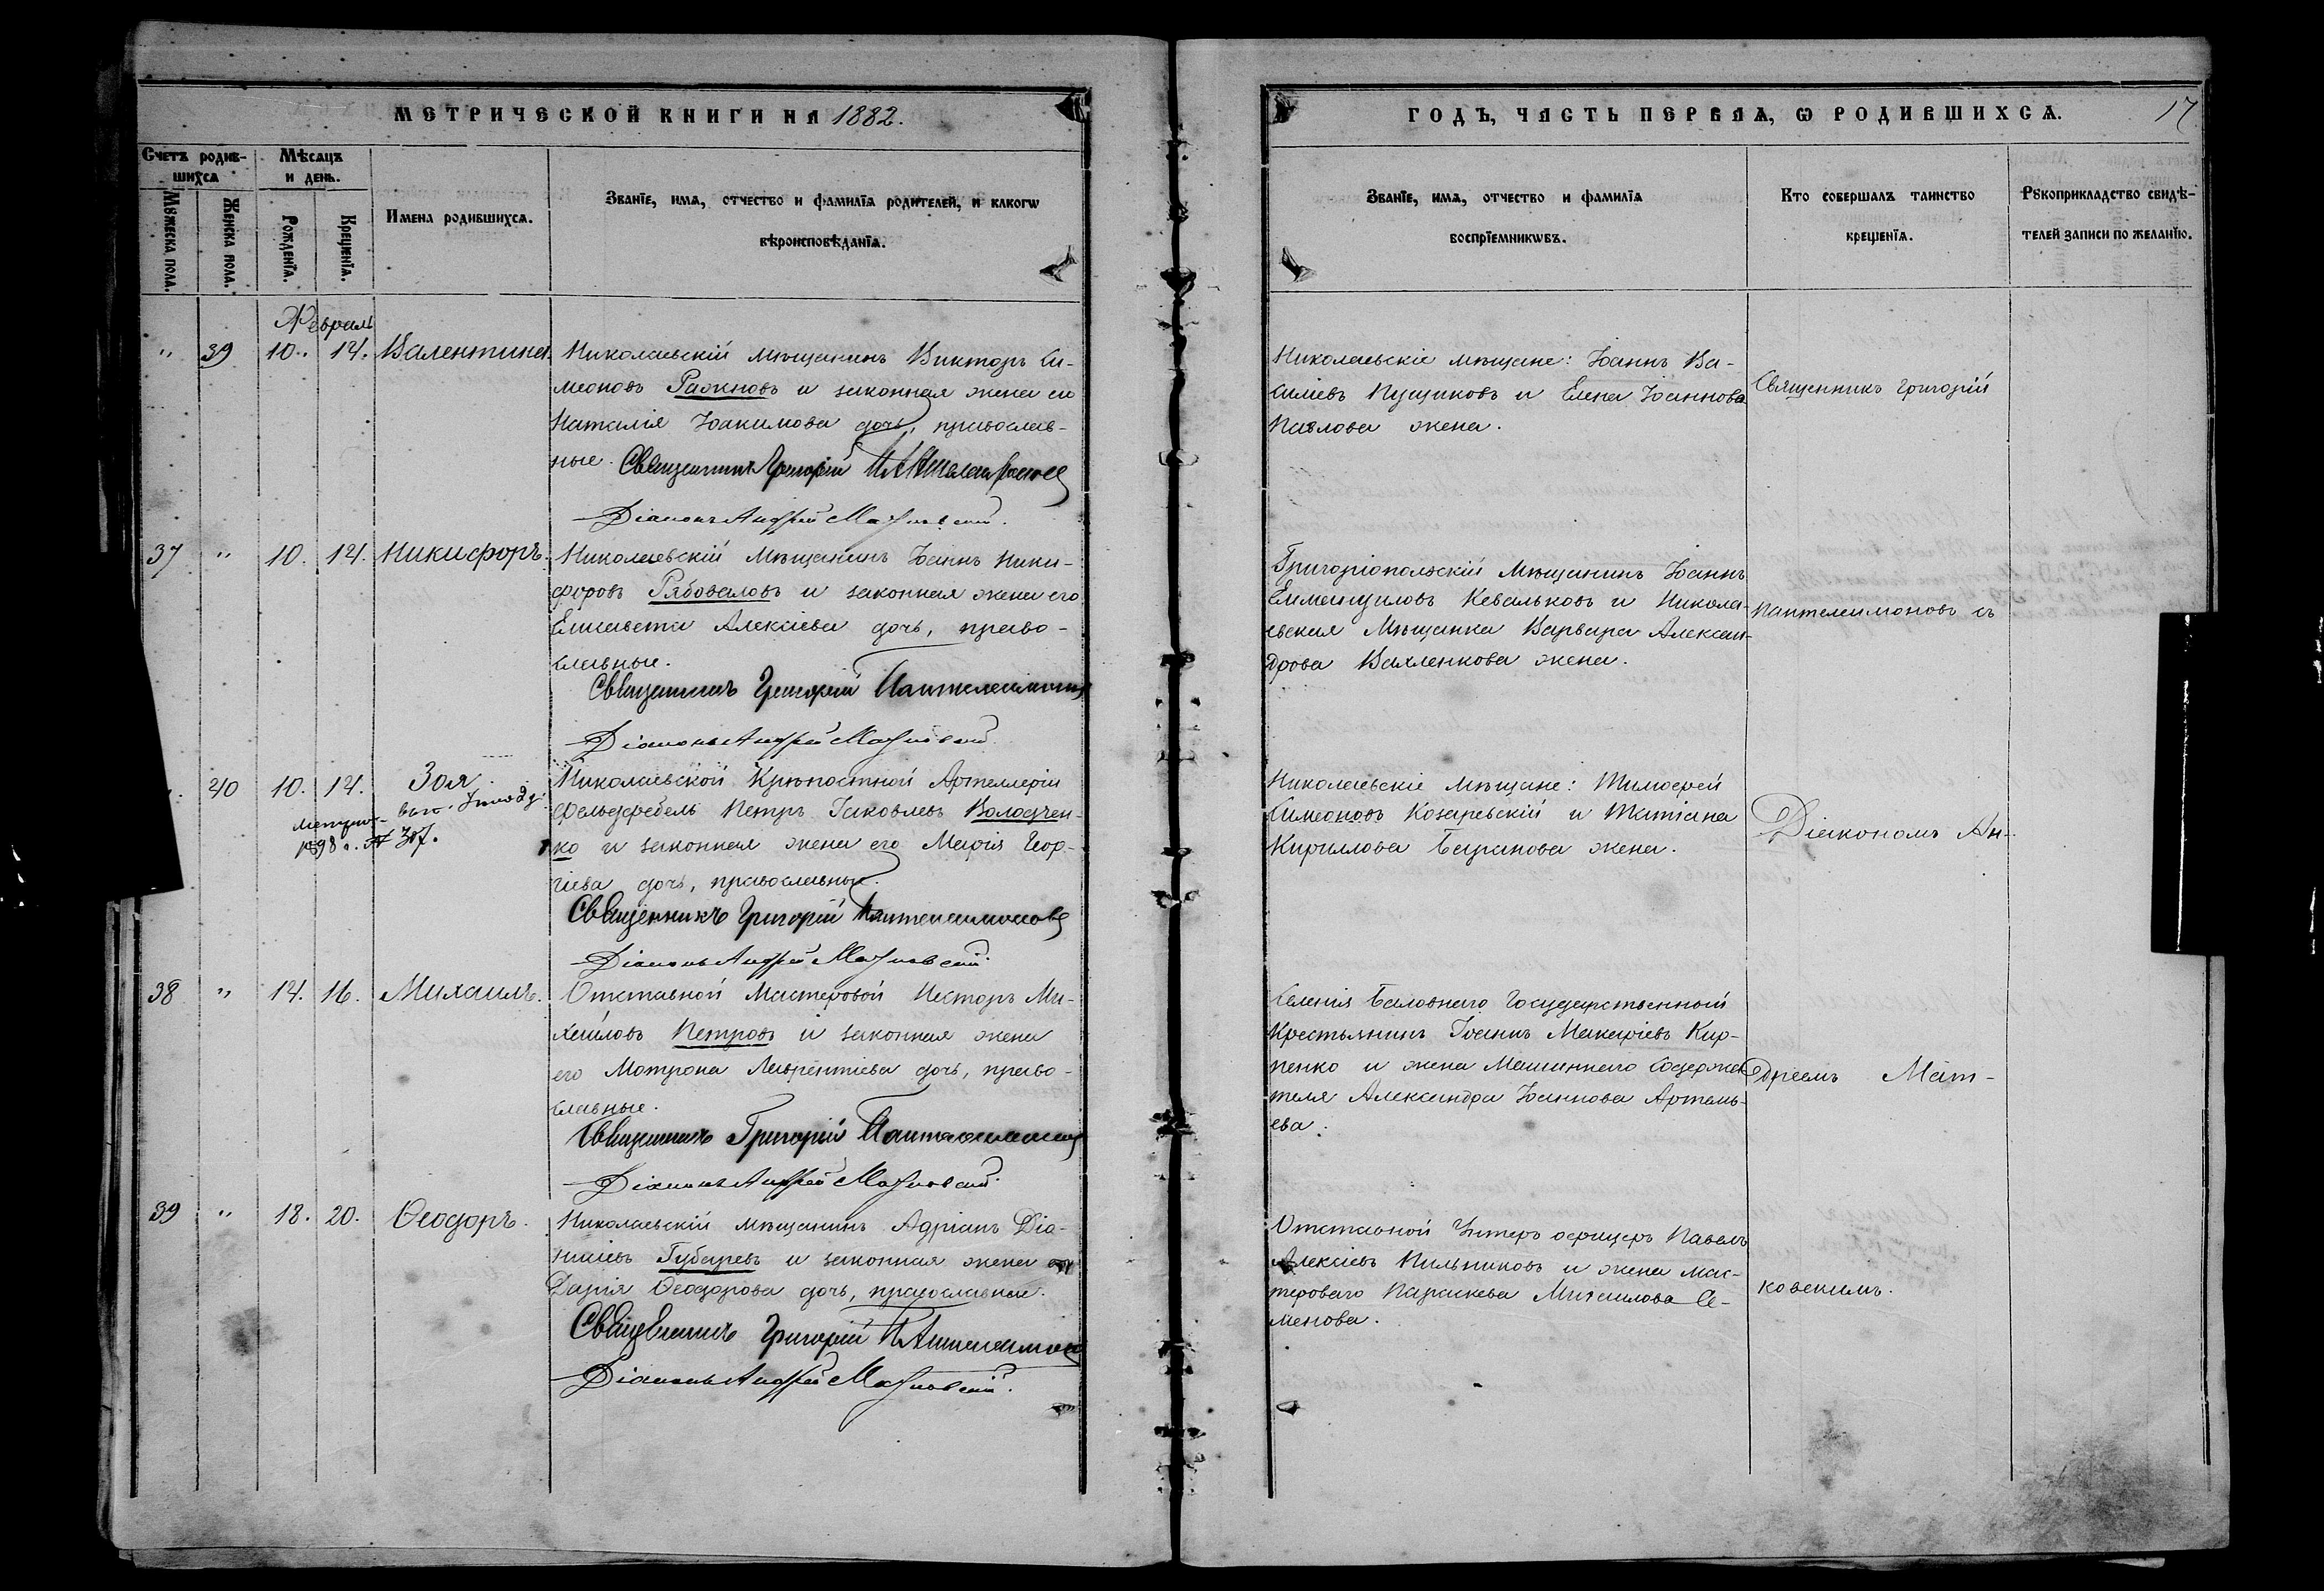 МЕТРИЧЕСКОЙ КНИГИ НА 1882.
Счетъ родив-
шихсѧ
Мѣсѧцъ
и день.
Мꙋжеска пола.
Женска пола.
Рожденїѧ.
Крещенїѧ.
Имена родившихсѧ.
Званїе, имѧ, отчество и фамилїѧ родителей, и какогѡ
вѣроисповѣданїѧ.
Февраль
" 39 10. 14. Валентина.
Николаевскій мѣщанинъ Викторъ Си-
меоновъ и законная жена его
Наталія Іоакимова дочь, православ-
ные. Священникъ Григорій Пантелеимоновъ
Діаконъ Андрей
37 " 10. 14. Никифоръ.
Николаевскій Мѣщанинъ Іоаннъ Ники-
форовъ Рябоваловъ и законная жена его
Елисавета Алексіева дочь, право-
славные.
Священникъ Григорій Пантелеимоновъ
Діаконъ Андрей
40 10. 14. Зоя.
1898 г. №
Николаевской Крѣпостной Артиллеріи
Фельдфебель Петръ Іаковлевъ Володчен-
ко и законная жена его Марія Геор-
гіева дочь, православные.
Священникъ Григорій Пантелеимоновъ
Діаконъ Андрей
38 " 14. 16. Михаилъ.
Отставной Мастеровой Несторъ Ми-
хаиловъ Петровъ и законная жена
его Мотрона Лаврентіева дочь, право-
славные.
Священникъ Григорій Пантелеимоновъ
Діаконъ Андрей
39 " 18. 20. Ѳеодоръ.
Николаевскій мѣщанинъ Адріанъ Діо-
нисіевъ Губаревъ и законная жена его
Дарія Ѳеодорова дочь, православные.
Священникъ Григорій Пантелеимоновъ
Діаконъ Андрей
ГОДЪ, ЧАСТЬ ПЕРВАѦ, Ѡ РОДИВШИХСѦ.
17
Званїе, имѧ, отчество и фамилїѧ
воспрїемникѡвъ.
Кто совершалъ таинство
крещенїѧ.
Рꙋкоприкладство свидѣ-
телей записи по желанїю.
Николаевскіе мѣщане: Іоаннъ Ва-
силіевъ Пущиковъ и Елена Іоаннова
Павлова жена.
Священникъ Григорій
Григоріопольскій Мѣщанинъ Іоаннъ
Еммануиловъ Кевальковъ и Никола-
евская Мѣщанка Варвара Алексан-
дрова Вахленкова жена.
Пантелеимоновъ съ
Николаевскіе Мѣщане: Тимофей
Симеоновъ Козаревскій и Татіана
Кириллова Баранова жена.
Діакономъ Ан-
Селенія Баловнаго Государственный
Крестьянинъ Іоаннъ Макаріевъ Кир-
пенко и жена Машиннаго Содержа-
теля Александра Іоаннова Артемь-
ева.
дреемъ Мат-
Отставной Унтеръ офицеръ Павелъ
Алексіевъ Пильниковъ и жена мас-
тероваго Параскева Михаилова Се-
менова.
ковскимъ.